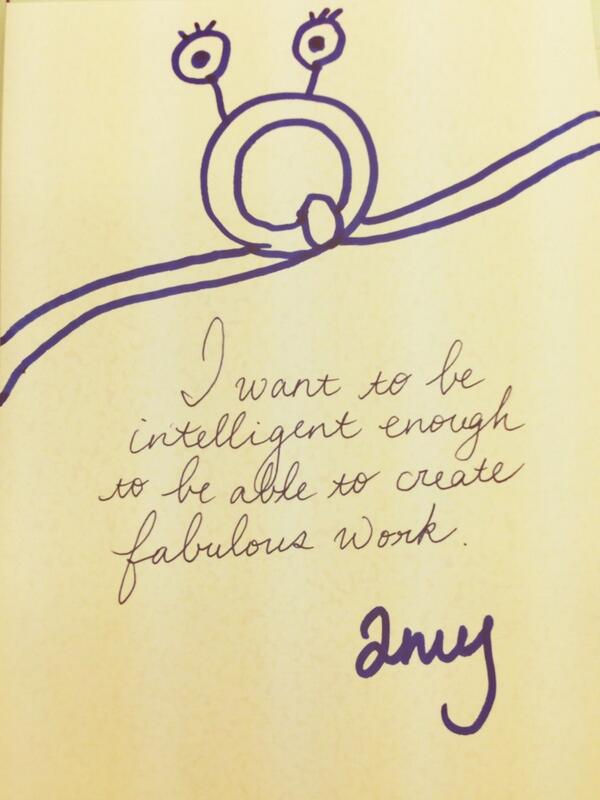 I want to be
intelligent enough
to be able to create
fabulous work.
amy